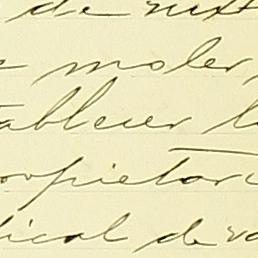 de
moler,
tablecer l
propietar
dical de